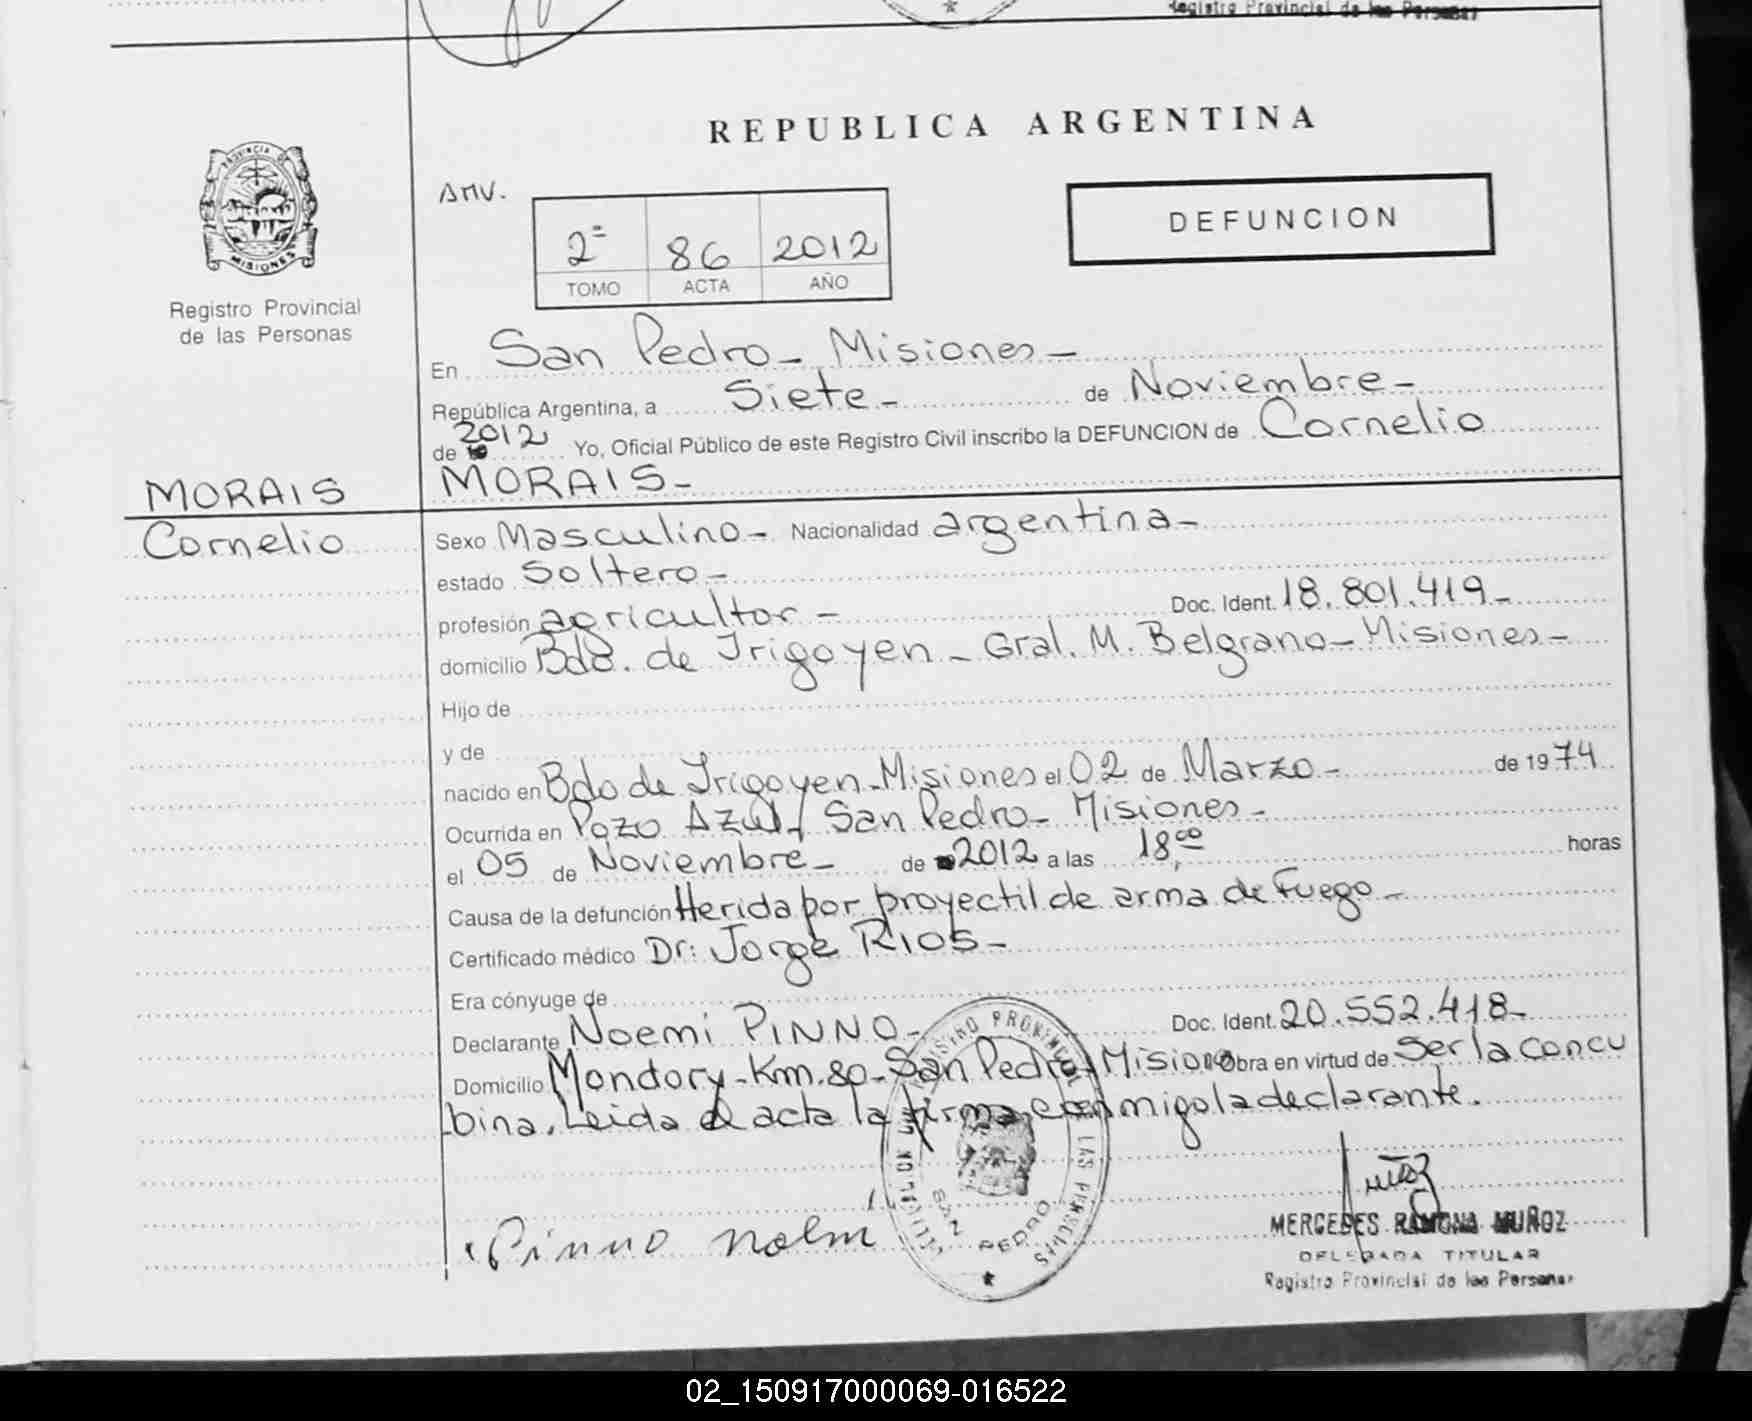 Registro Provincial de las Personas
REPUBLICA ARGENTINA
PROVINCIA DE
MISIONES
Registro Provincial
de las Personas
ANV.
DEFUNCION
2= 86 2012
TOMO ACTA AÑO
En San Pedro - Misiones -
República Argentina, a Siete - de Noviembre -
de 2012 Yo, Oficial Público de este Registro Civil inscribo la DEFUNCION de Cornelio
MORAIS MORAIS -
Cornelio Sexo Masculino - Nacionalidad argentina -
estado Soltero -
profesión agricultor - Doc. Ident. 18.801.419 -
domicilio Bdo. de Irigoyen - Gral. M. Belgrano - Misiones -
Hijo de
y de
nacido en Bdo de Irigoyen - Misiones el 02 de Marzo - de 1974
Ocurrida en Pozo Azul / San Pedro - Misiones -
el 05 de Noviembre - de 2012 a las 18,00 horas
Causa de la defunción Herida por proyectil de arma de Fuego -
Certificado médico Dr: Jorge RIOS -
Era cónyuge de
Declarante Noemi PINNO - Doc. Ident. 20.552.418 -
Domicilio Mondory - Km. 80 - San Pedro - Misiones Obra en virtud de Ser la concu
bina. Leida el acta la firma conmigo la declarante.
REGISTRO PROVINCIAL DE LAS PERSONAS
SAN PEDRO
Pinno
MERCEDES RAMONA MUÑOZ
DELEGADA TITULAR
Registro Provincial de las Personas
02_150917000069-016522